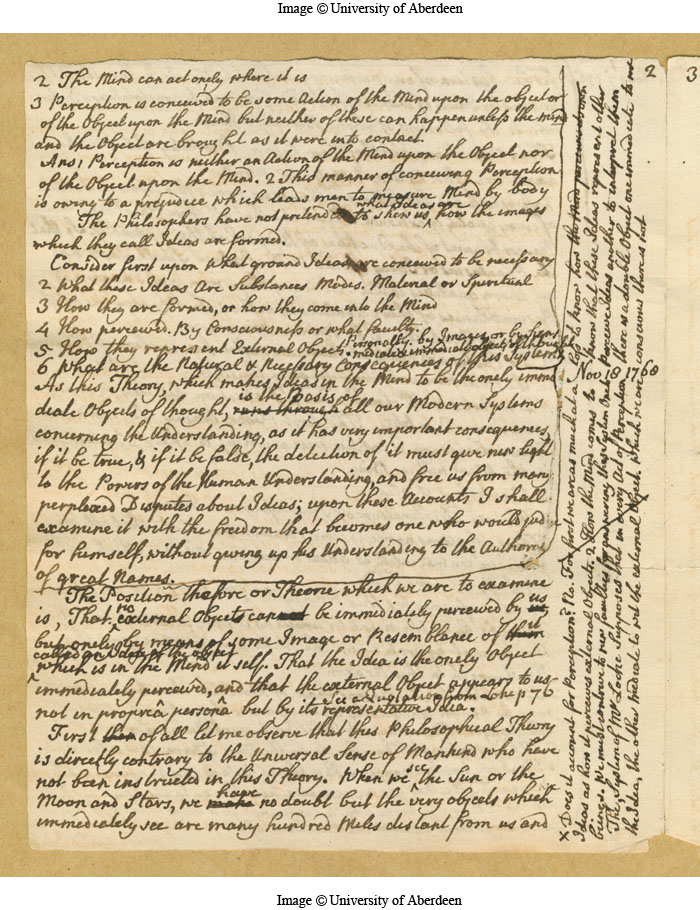 Image © University of Aberdeen
2
3
2 The Mind can act onely where it is
3 Perception is conceived to be some Action of the Mind upon the object or
of the Object upon the Mind but neither of these can happen unless the mind
and the Object are brought as it were into contact.
Ans 1 Perception is neither an Action of the Mind upon the Object nor
of the Object upon the Mind. 2 This manner of conceiving Perception
is owing to a prejudice which leads men to measure Mind by body
what ideas are
The Philosophers have not pretended to shew us, how the images
which they call Ideas are formed.
Consider first upon what ground Ideas are conceived to be necessary
2 What these Ideas Are Substances Modes. Material or Spiritual
3 How they are formed, or how they come into the Mind
4 How perceived. By Consciousness or what faculty.
5 How they represent External Object. Personally. by Images or
6 What are the Natural & Necessary Consequences of this System
Nov 10 1760
As this Theory, which makes Ideas in the Mind to be the onely imme
is the basis of
diate Objects of thought, runs through all our Modern Systems
concerning the Understanding, as it has very important consequences,
if it be true, & if it be false, the detection of it must give new light
to the Powers of the Human Understanding, and free us from many
perplexed Disputes about Ideas; upon these Accounts I shall
examine it with the freedom that becomes one who would judge
for himself, without giving up his Understanding to the Authority
of great Names.
The Position therefore or Theorie which we are to examine
is, That no external Objects cannot be immediately perceived by us
but onely by means of some Image or Resemblance of it
called an Idea of the object
which is in the Mind it self. That the Idea is the onely Object
immediately perceived, and that the external Object appears to us
not in propriâ personâ but by its representative Idea.
First of all let me observe that this Philosophical Theory
is directly contrary to the Universal Sense of Mankind who have
not been instructed in this Theory. When we see the Sun or the
have
Moon and Stars, we make no doubt but the very objects which
immediately see are many hundred Miles distant from us and
x Does it account for Perception? No. For first we are as much at a loss to know how the mind perceives its own
Ideas as how it perceives external Objects. 2 How the Mind comes to know that these Ideas represent other
beings. We must contrive to new faculties by
The System of Mr Locke Supposes that in every Act of Perception there is a double Object one immediate to wit
the Idea, the other Mediate to wit the external Object, which we are conscious there is not
Image © University of Aberdeen